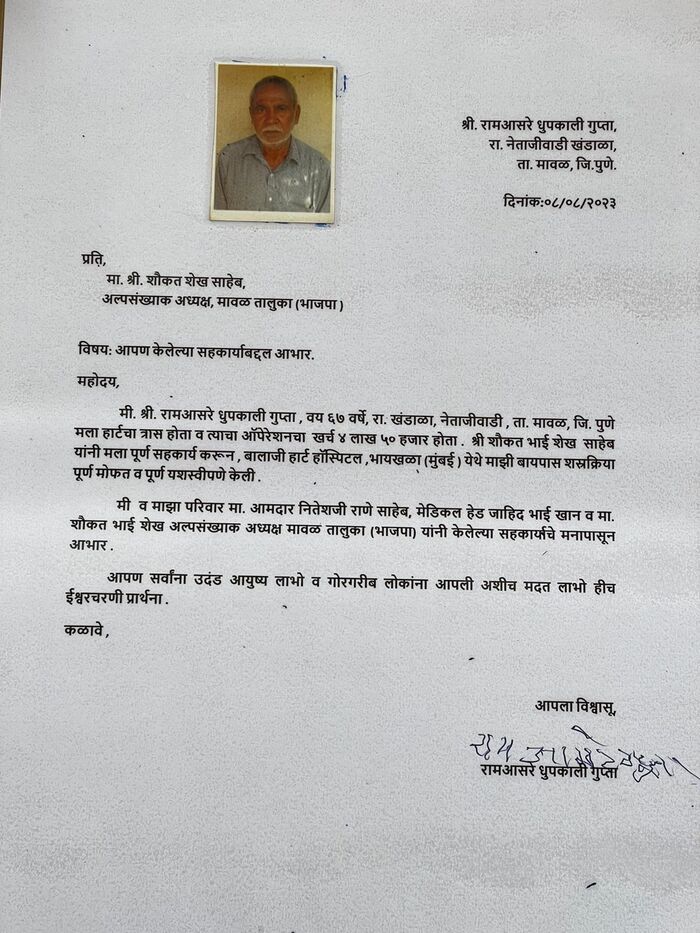 श्री. रामआसरे धुपकाली गुप्ता,
रा. नेताजीवाडी खंडाळा,
ता. मावळ, जि.पुणे.
दिनांक:०८/०८/२०२३
प्रति,
मा. श्री. शौकत शेख साहेब,
अल्पसंख्याक अध्यक्ष, मावळ तालुका (भाजपा )
विषय: आपण केलेल्या सहकार्याबद्दल आभार.
महोदय,
मी. श्री. रामआसरे धुपकाली गुप्ता , वय ६७ वर्षे, रा. खंडाळा, नेताजीवाडी , ता. मावळ, जि. पुणे
मला हार्टचा त्रास होता व त्याचा ऑपेरेशनचा खर्च ४ लाख ५० हजार होता . श्री शौकत भाई शेख साहेब
यांनी मला पूर्ण सहकार्य करून , बालाजी हार्ट हॉस्पिटल ,भायखळा (मुंबई ) येथे माझी बायपास शस्रक्रिया
पूर्ण मोफत व पूर्ण यशस्वीपणे केली .
मी व माझा परिवार मा. आमदार नितेशजी राणे साहेब, मेडिकल हेड जाहिद भाई खान व मा.
शौकत भाई शेख अल्पसंख्याक अध्यक्ष मावळ तालुका (भाजपा) यांनी केलेल्या सहकार्याचे मनापासून
आभार .
आपण सर्वांना उदंड आयुष्य लाभो व गोरगरीब लोकांना आपली अशीच मदत लाभो हीच
ईश्वरचरणी प्रार्थना .
कळावे ,
आपला विश्वासू,
राम आसरे गुप्ता
रामआसरे धुपकाली गुप्ता